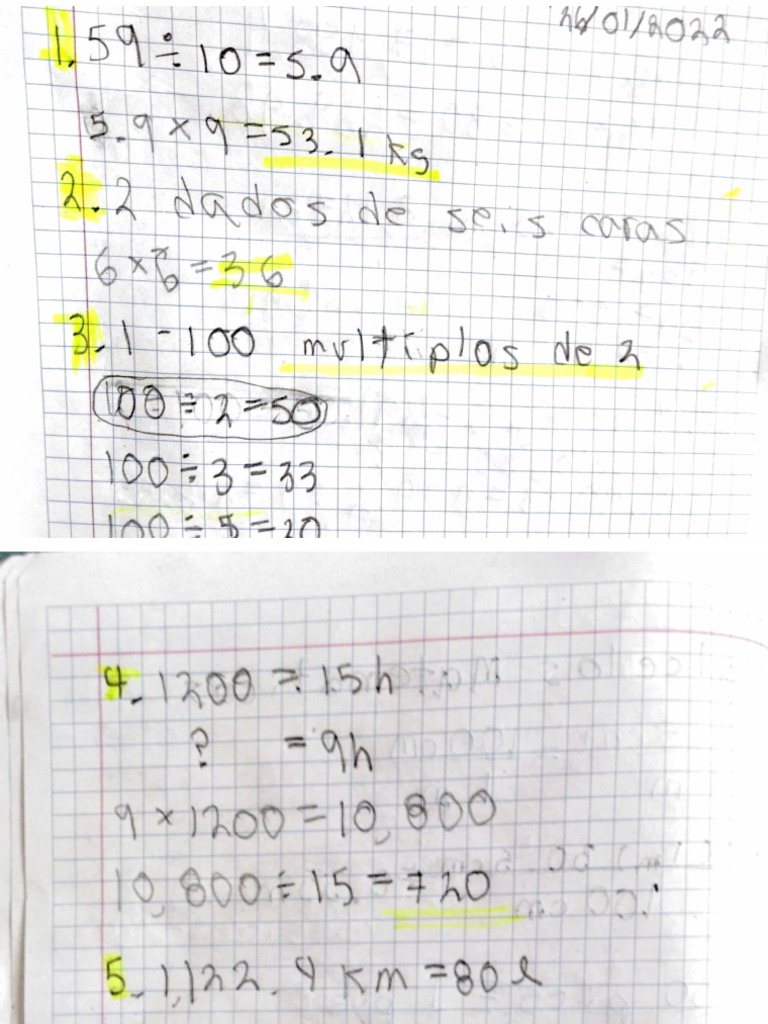 26/01/2022
1. 59 ÷ 10 = 5.9
5.9 × 9 = 53.1 ks
2. 2 dados de seis caras
6 × 6 = 36
3. 1 - 100 multiplos de 2
100 ÷ 2 = 50
100 ÷ 3 = 33
100 ÷ 5 = 20
4. 1200 = 15h
? = 9h
9 × 1200 = 10,800
10,800 ÷ 15 = 720
5. 1,122.4 km = 80 l